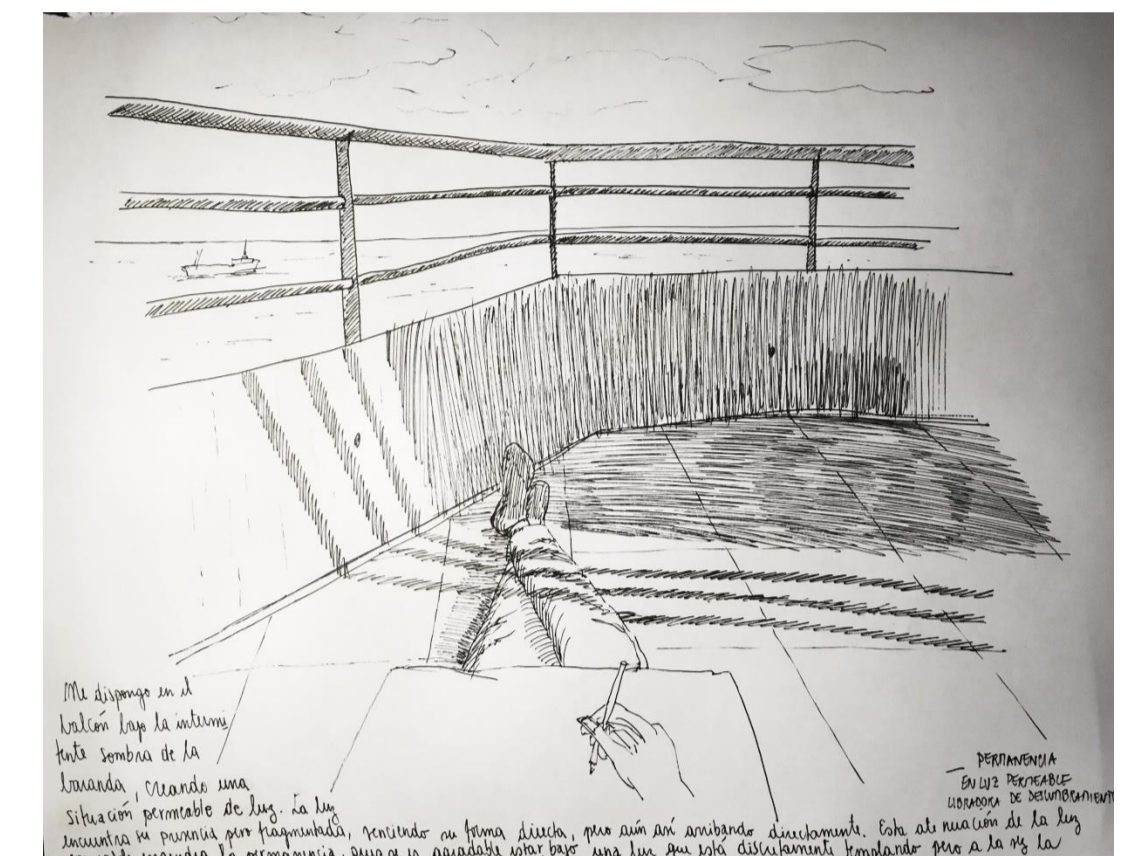 Me dispongo en el
balcón bajo la intermi
tente sombra de la
baranda, creando una
situación permeable de luz. La luz
encuentra su presencia pero fragmentada, venciendo su forma directa, pero aún así arribando directamente. Esta atenuación de la luz
la permanencia, pues es agradable estar bajo una luz que está discretamente templando pero a la vez la
PERMANENCIA
EN LUZ PERMEABLE
LIBRADORA DE DESLUMBRAMIENTO